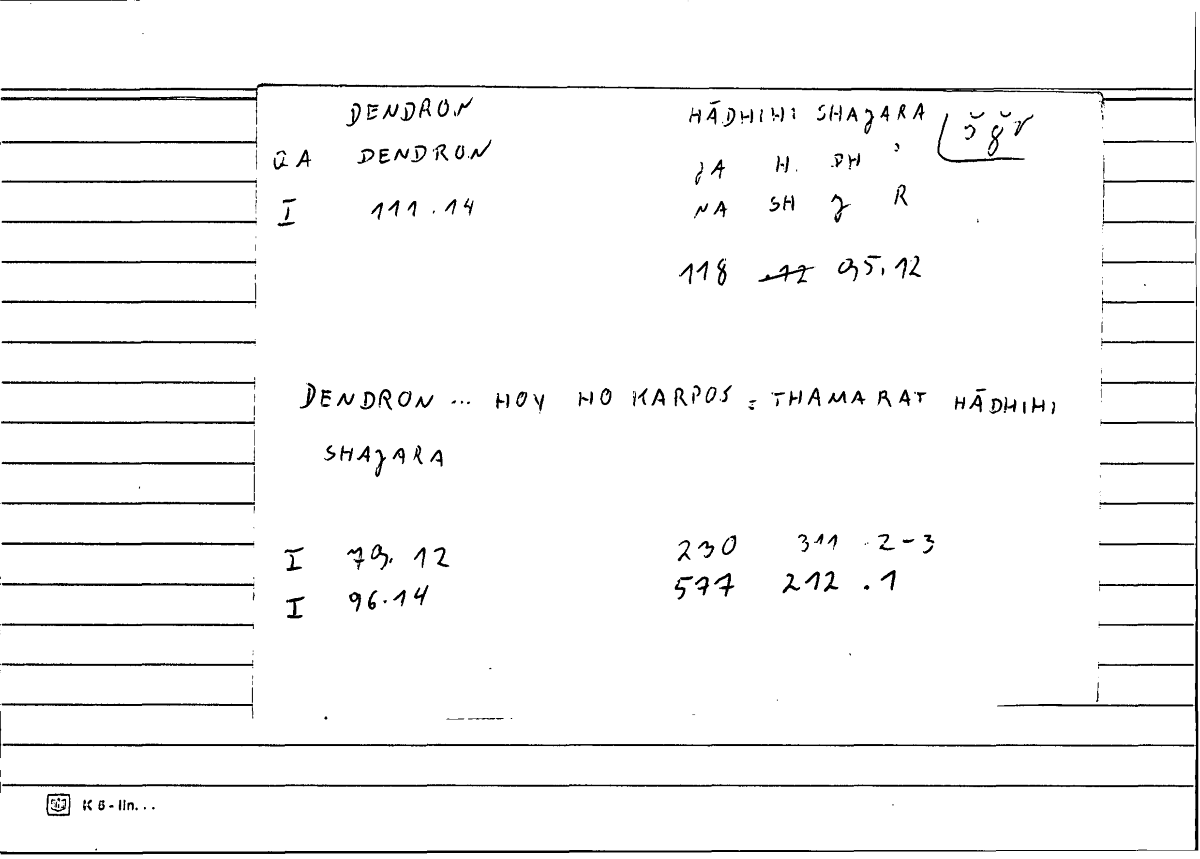 DENDRON HĀDHIHI SHAJARA šǧr
QA DENDRON JA H. DH '
I 111.14 NA SH J R
118 .12 95.12
DENDRON ... HOY HO KARPOS = THAMARAT HĀDHIHI
SHAJARA
I 79.12 230 311.2-3
I 96.14 577 212.1
K 6-lin...